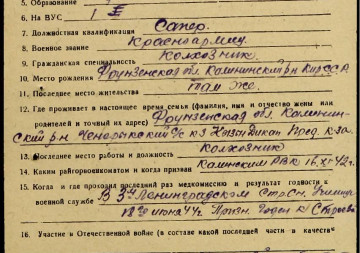 5. Образование
6. На ВУС 1
7. Должностная квалификация Сапер.
8. Военное звание Красноармеец
9. Гражданская специальность Колхозник
10. Место рождения Фрунзенская обл. Калининский р-н Кирг.ССР
11. Последнее место жительства Там же.
12. Где проживает в настоящее время семья (фамилия, имя и отчество жены или
родителей и точный их адрес) Фрунзенская обл. Калинин-
ский р-н с/с к-з
13. Последнее место работы и должность Колхозник
14. Каким райгорвоенкоматом и когда призван Калинским РВК 16.XI-42г.
15. Когда и где проходил последний раз медкомиссию и результат годности к
военной службе В 3м Ленинградском Стр.Сн. Училище
июня 44г. Призн. Годен к Строевой
16. Участие в Отечественной войне (в составе какой последней части в качестве